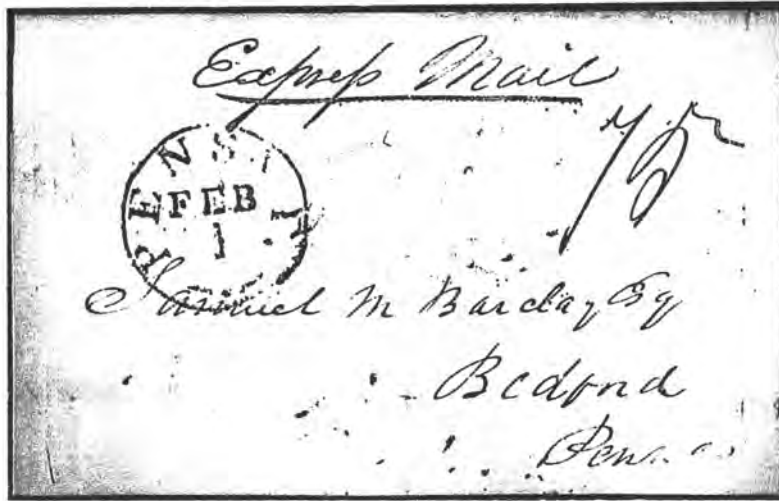 Express Mail
75
FEB
1
Samuel M Barclay Esq
Bedford